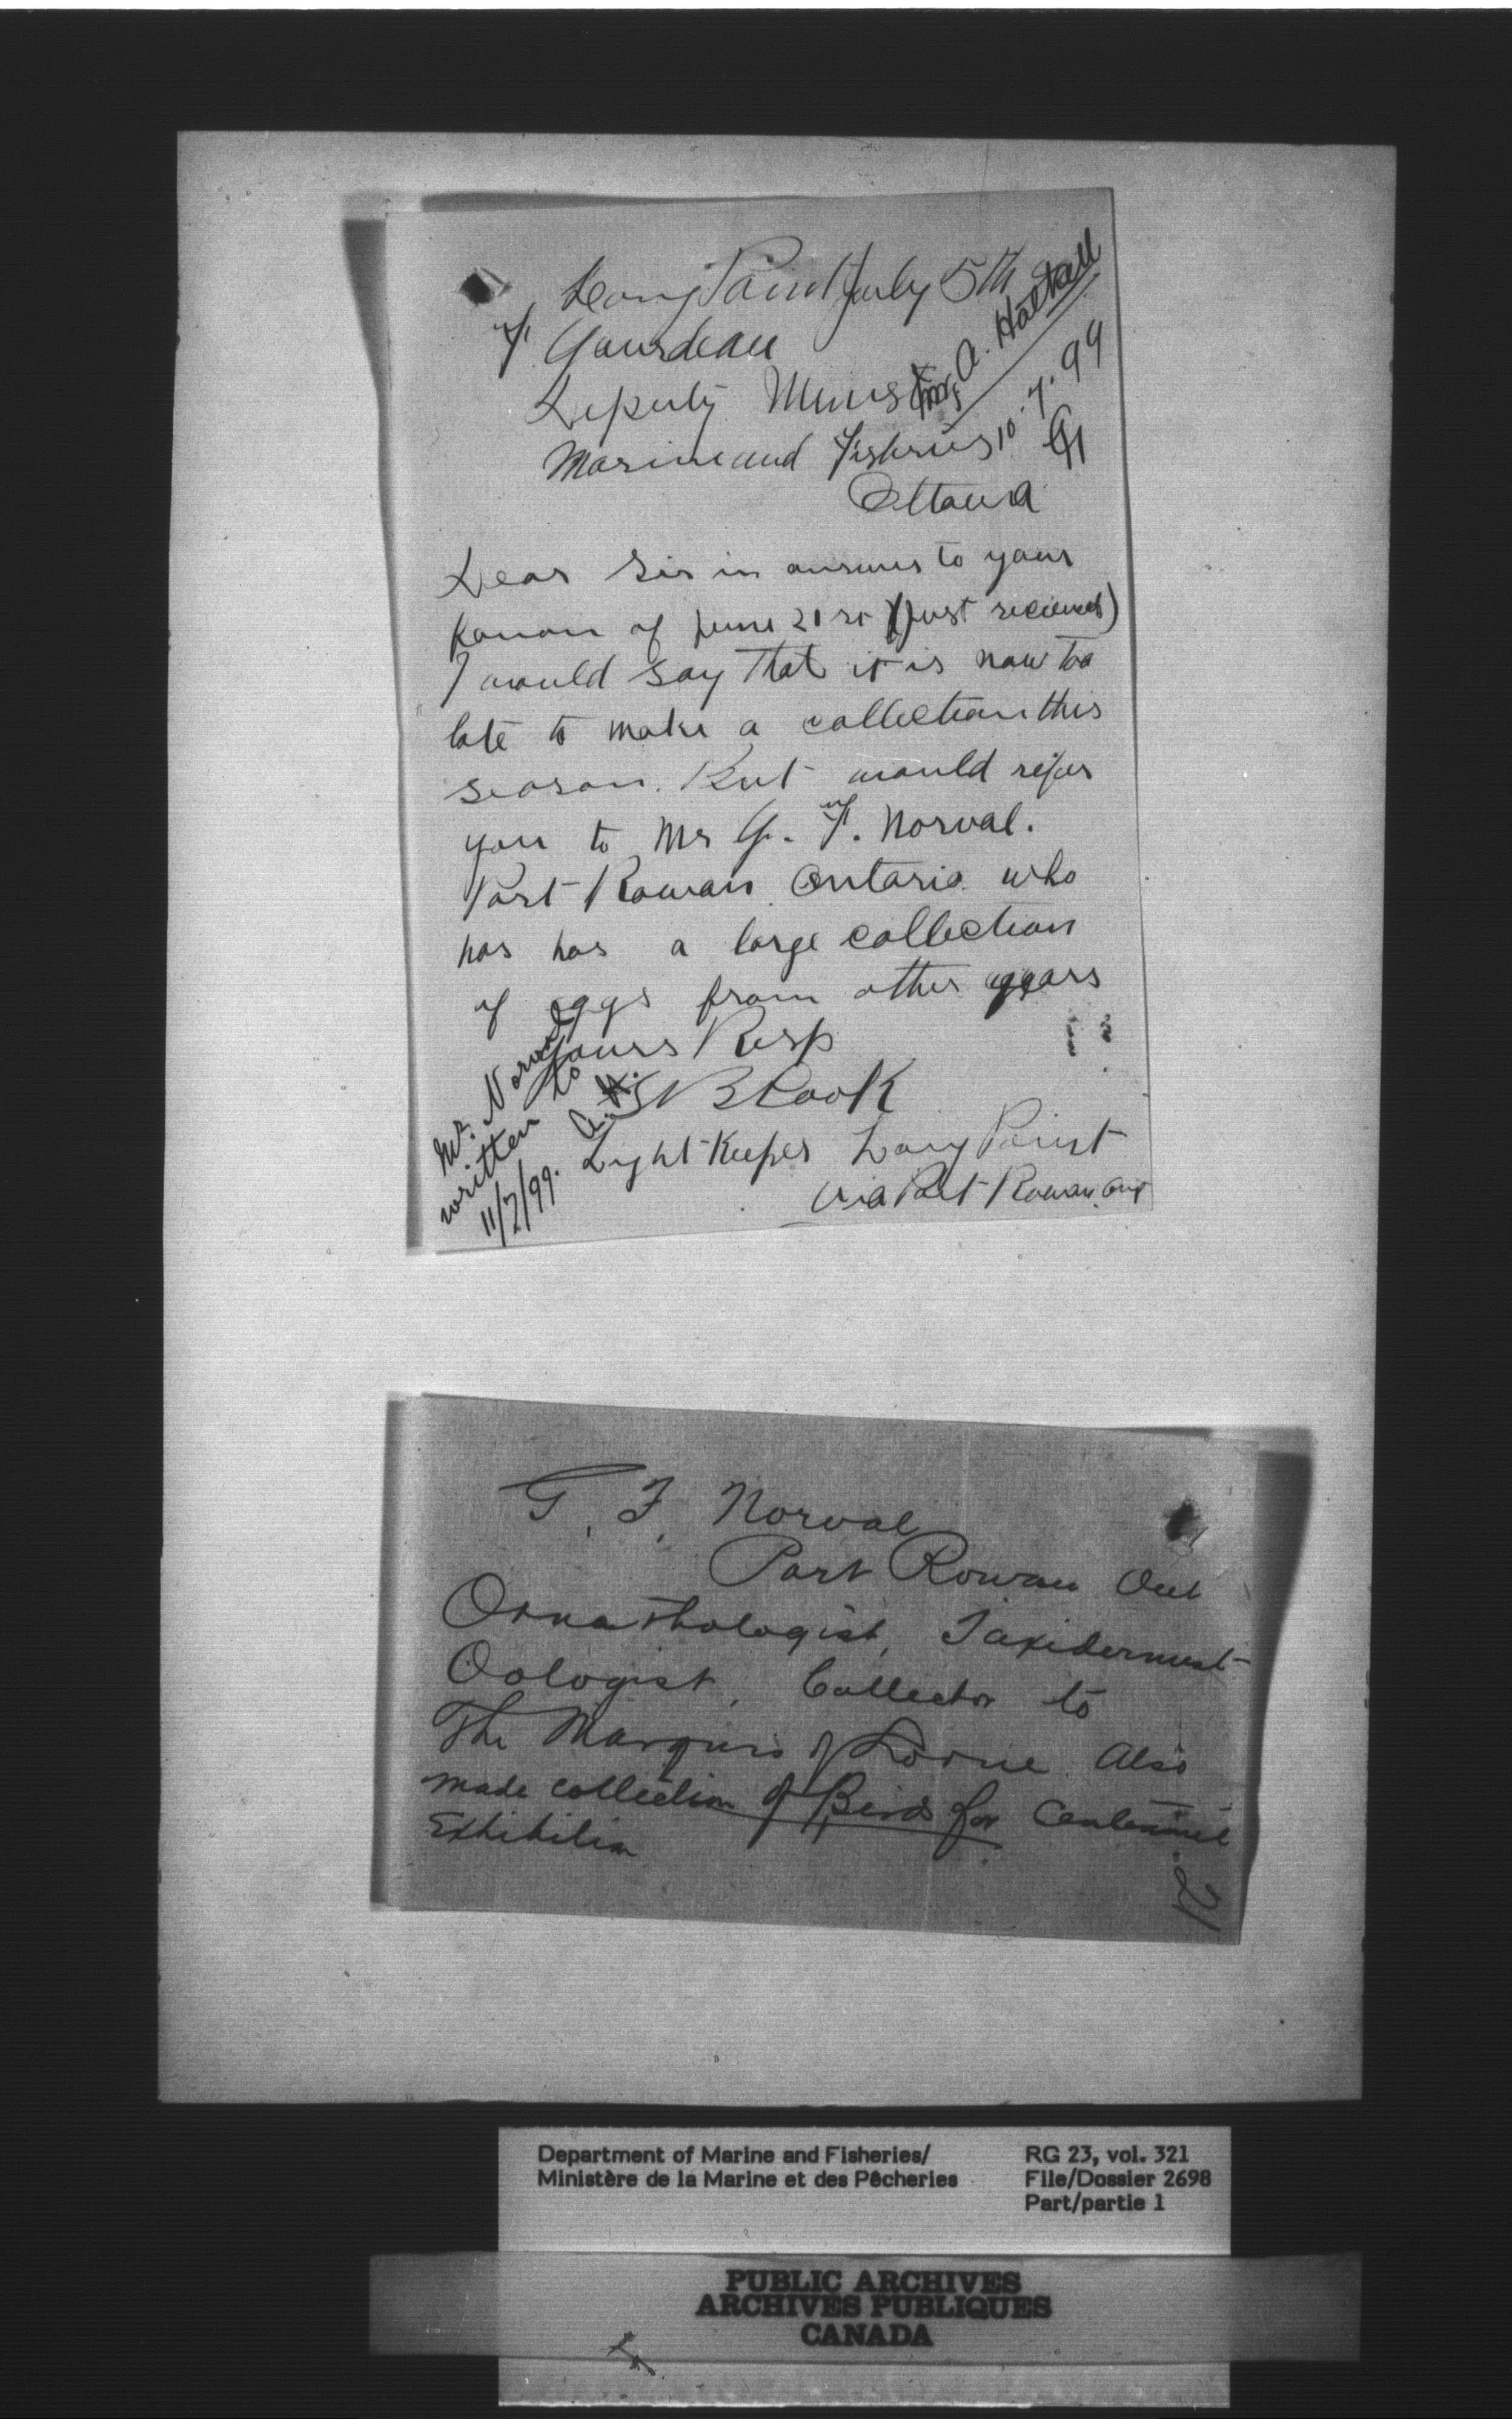 Long Point July 5th
F. Gourdeau
Deputy Minister
Marine and Fisheries
Ottawa
A. Halkett
10.7.99
Dear Sir in answer to your
favour of June 21st (just recieved)
I would say that it is now too
late to make a collection this
season. But would refer
you to Mr G. F. Norval.
Port Rowan Ontario who
has has a large collection
of eggs from other years
Yours Resp
S B Cook
Light Keeper Long Point
Via Port Rowan Ont
Mr. Norval
written to
11/7/99. A.H.
G. F. Norval
Port Rowan Ont
Ornathologist, Taxidermist
Oologist, Collector to
The Marquis of Lorne. Also
made collection of Birds for Centennial
Exhibition
Department of Marine and Fisheries/
Ministère de la Marine et des Pêcheries
RG 23, vol. 321
File/Dossier 2698
Part/partie 1
PUBLIC ARCHIVES
ARCHIVES PUBLIQUES
CANADA